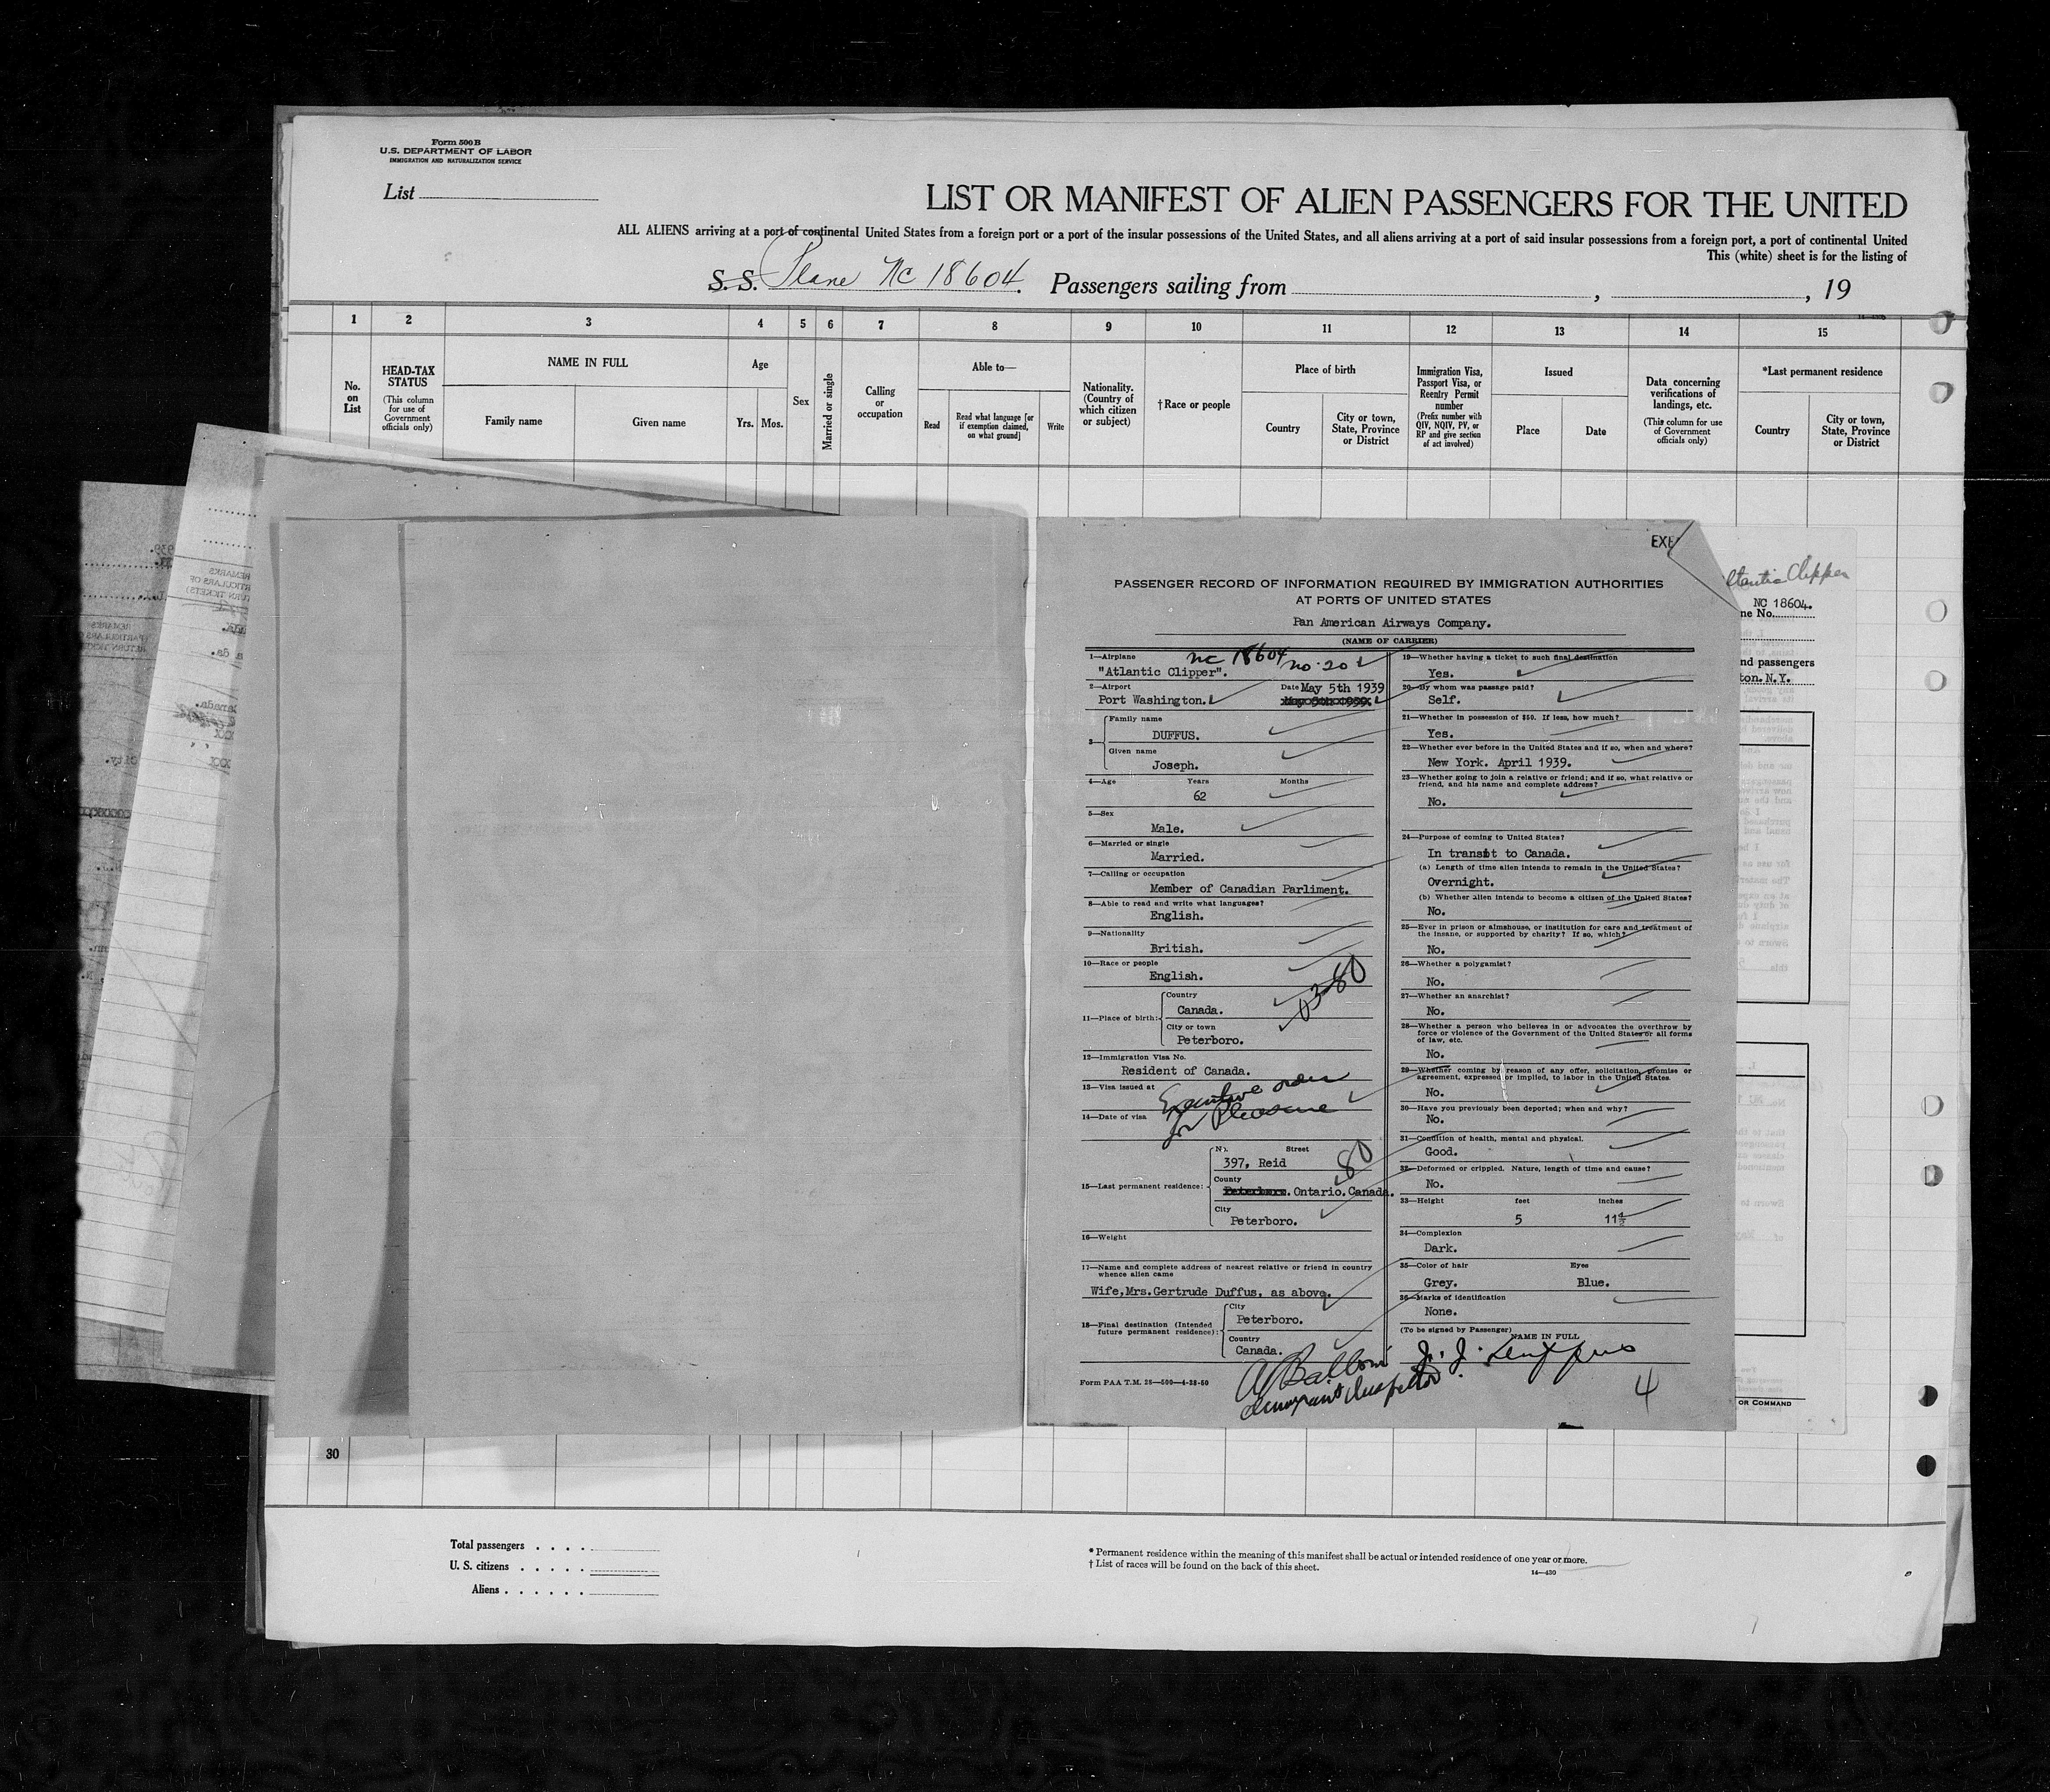 Form 500 B
U.S. DEPARTMENT OF LABOR
IMMIGRATION AND NATURALIZATION SERVICE
List
LIST OR MANIFEST OF ALIEN PASSENGERS FOR THE UNITED
ALL ALIENS arriving at a port of continental United States from a foreign port or a port of the insular possessions of the United States, and all aliens arriving at a port of said insular possessions from a foreign port, a port of continental United
This (white) sheet is for the listing of
S. S. Plane NC 18604. Passengers sailing from , , 19
1 2 3 4 5 6 7 8 9 10 11 12 13 14 15
No. on List
HEAD-TAX STATUS
(This column for use of Government officials only)
NAME IN FULL
Family name Given name
Age
Yrs. Mos.
Sex
Married or single
Calling or occupation
Able to—
Read
Read what language [or if exemption claimed, on what ground]
Write
Nationality. (Country of which citizen or subject)
† Race or people
Place of birth
Country
City or town, State, Province or District
Immigration Visa, Passport Visa, or Reentry Permit number
(Prefix number with QIV, NQIV, PV, or RP and give section of act involved)
Issued
Place Date
Data concerning verifications of landings, etc.
(This column for use of Government officials only)
*Last permanent residence
Country
City or town, State, Province or District
PASSENGER RECORD OF INFORMATION REQUIRED BY IMMIGRATION AUTHORITIES
AT PORTS OF UNITED STATES
Pan American Airways Company.
(NAME OF CARRIER)
1—Airplane NC 18604 no. 20
"Atlantic Clipper".
2—Airport Date May 5th 1939
Port Washington.
3—
Family name
DUFFUS.
Given name
Joseph.
4—Age Years Months
62
5—Sex
Male.
6—Married or single
Married.
7—Calling or occupation
Member of Canadian Parliment.
8—Able to read and write what languages?
English.
9—Nationality
British.
10—Race or people
English.
11—Place of birth:
Country
Canada.
City or town
Peterboro.
12—Immigration Visa No.
Resident of Canada.
13—Visa issued at
Executive order
14—Date of visa
for Pleasure
15—Last permanent residence:
No. Street
397, Reid
80
County
Ontario.Canada.
City
Peterboro.
16—Weight
17—Name and complete address of nearest relative or friend in country
whence alien came
Wife,Mrs.Gertrude Duffus, as above.
18—Final destination (Intended
future permanent residence):
City
Peterboro.
Country
Canada.
Form PAA T.M. 28—500—4-28-50
Immigrant Inspector
19—Whether having a ticket to such final destination
Yes.
20—By whom was passage paid?
Self.
21—Whether in possession of $50. If less, how much?
Yes.
22—Whether ever before in the United States and if so, when and where?
New York. April 1939.
23—Whether going to join a relative or friend; and if so, what relative or
friend, and his name and complete address?
No.
24—Purpose of coming to United States?
In transit to Canada.
(a) Length of time alien intends to remain in the United States?
Overnight.
(b) Whether alien intends to become a citizen of the United States?
No.
25—Ever in prison or almshouse, or institution for care and treatment of
the insane, or supported by charity? If so, which?
No.
26—Whether a polygamist?
No.
27—Whether an anarchist?
No.
28—Whether a person who believes in or advocates the overthrow by
force or violence of the Government of the United States or all forms
of law, etc.
No.
29—Whether coming by reason of any offer, solicitation, promise or
agreement, expressed or implied, to labor in the United States
No.
30—Have you previously been deported; when and why?
No.
31—Condition of health, mental and physical.
Good.
32—Deformed or crippled. Nature, length of time and cause?
No.
33—Height feet inches
5 11½
34—Complexion
Dark.
35—Color of hair Eyes
Grey. Blue.
36—Marks of identification
None.
(To be signed by Passenger)
NAME IN FULL
J. J. Duffus
4
Clipper
NC 18604.
ne No.
nd passengers
ton. N.Y.
OR COMMAND
30
Total passengers
U. S. citizens
Aliens
* Permanent residence within the meaning of this manifest shall be actual or intended residence of one year or more.
† List of races will be found on the back of this sheet.
14—430